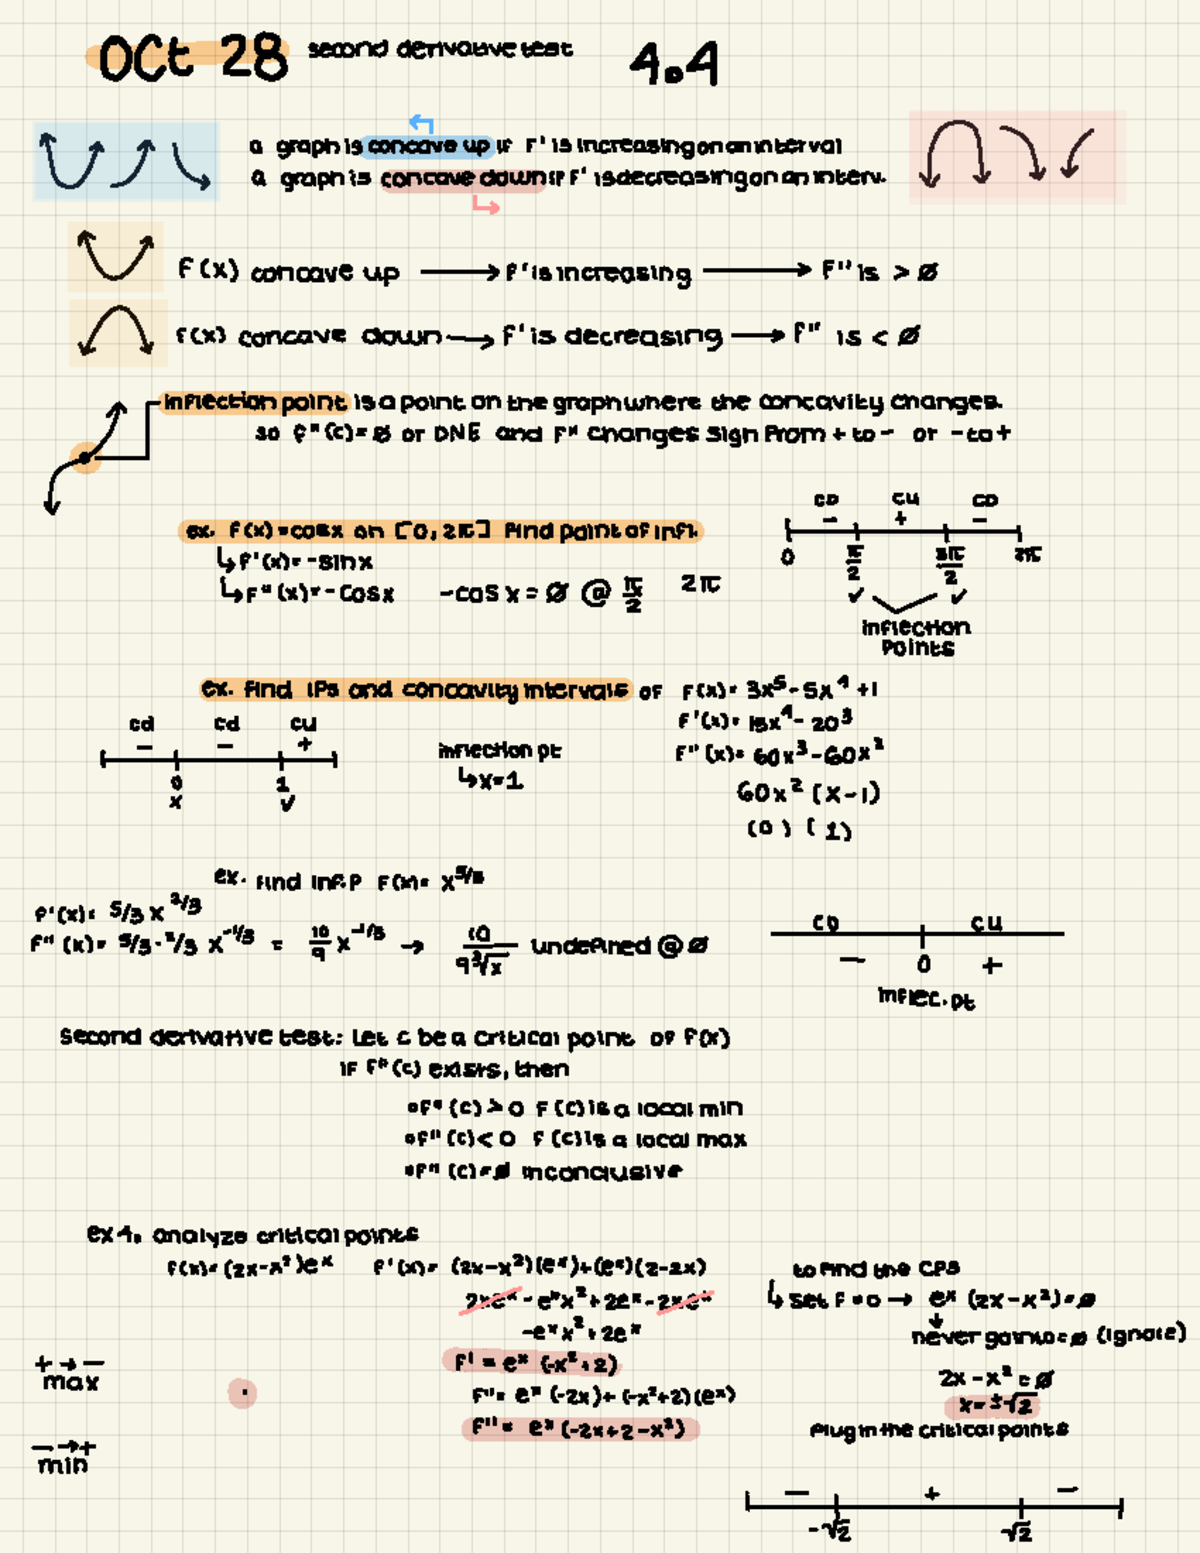 Oct 28 second derivative test 4.4
a graph is concave up if f' is increasing on an interval
a graph is concave down if f' is decreasing on an interv.
f(x) concave up → f' is increasing → f'' is > Ø
f(x) concave down → f' is decreasing → f'' is < Ø
inflection point is a point on the graph where the concavity changes.
so f''(c)=Ø or DNE and f'' changes sign from + to - or - to +
ex. f(x)=cosx on [0,2π] find point of infl.
↳f'(x)=-sinx
↳f''(x)=-cosx -cos x = Ø @ π/2 2π
CD CU CD
- + -
0 π/2 3π/2 2π
✓ ✓
inflection
points
ex. find IPs and concavity intervals of f(x)= 3x⁵-5x⁴+1
f'(x)= 15x⁴-20³
f''(x)= 60x³-60x²
60x²(x-1)
(0) (1)
cd cd cu
- - +
0 1
x ✓
inflection pt
↳x=1
ex. find inf.p f(x)= x^5/3
f'(x)= 5/3 x^2/3
f''(x)= 5/3·2/3 x^-1/3 = 10/9 x^-1/3 → 10/9∛x undefined @ Ø
CD CU
- 0 +
inflec.pt
second derivative test: let c be a critical point of f(x)
if f''(c) exists, then
•f''(c)>0 f(c) is a local min
•f''(c)<0 f(c) is a local max
•f''(c)=Ø inconclusive
ex4. analyze critical points
f(x)=(2x-x²)eˣ f'(x)= (2x-x²)(eˣ)+(eˣ)(2-2x)
2xeˣ - eˣx²+2eˣ-2xeˣ
-eˣx²+2eˣ
f' = eˣ(-x²+2)
f''= eˣ(-2x)+(-x²+2)(eˣ)
f''= eˣ(-2x+2-x²)
to find the CPs
↳set f=0 → eˣ(2x-x²)=Ø
↓
never gonna = Ø (ignore)
2x-x²=Ø
x=±√2
plug in the critical points
+→-
max
-→+
min
- + -
-√2 √2